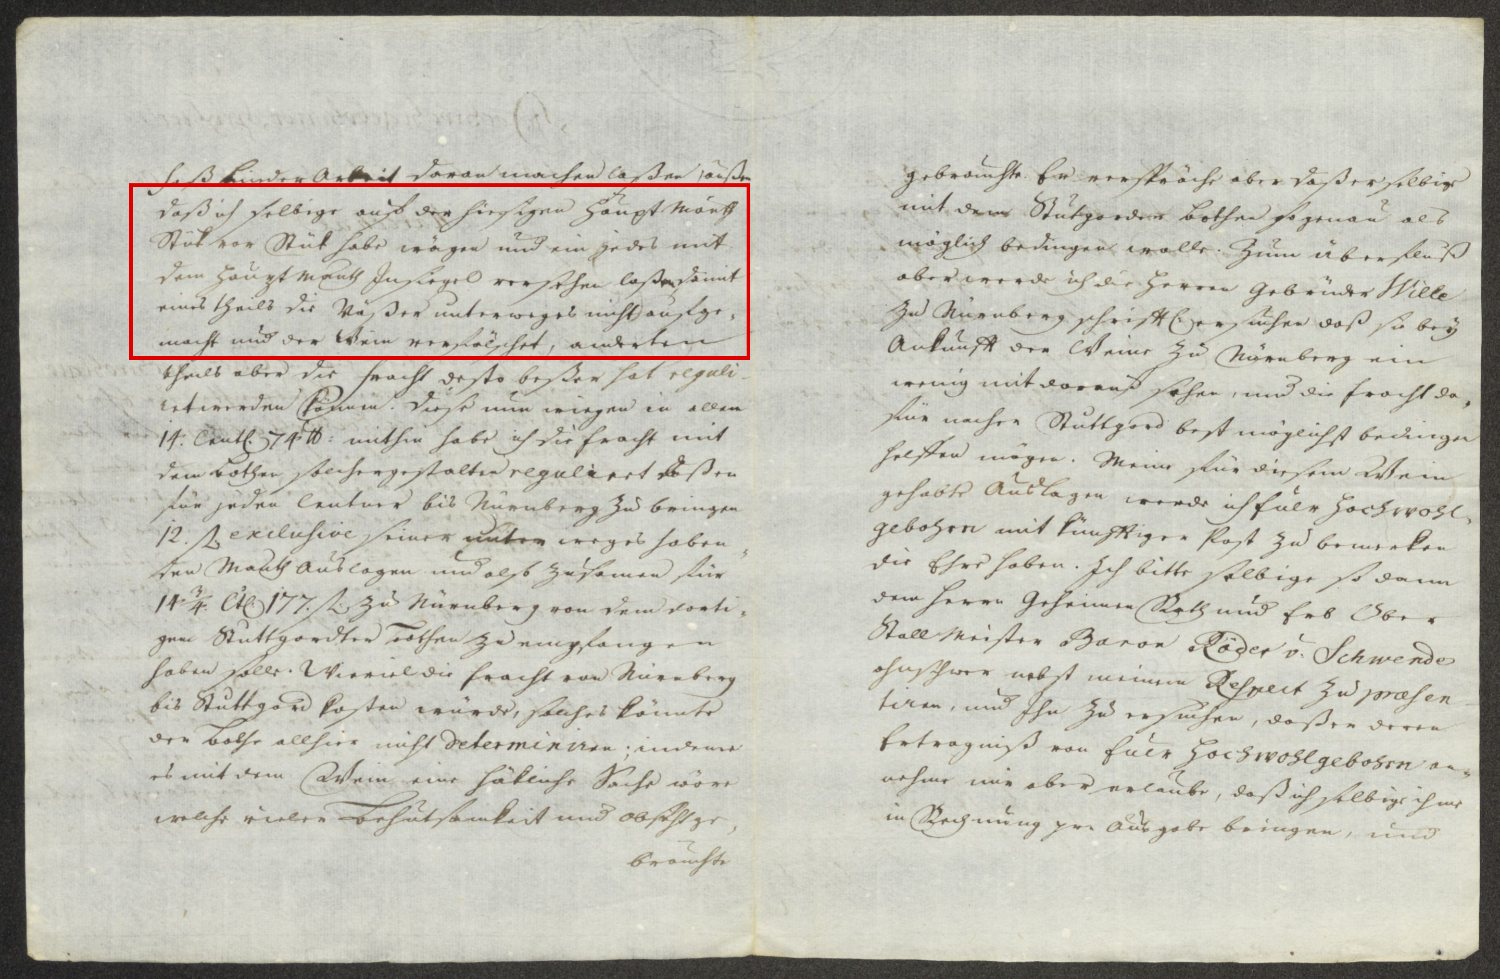 Faß binder Arbeit daran machen laßen, außer
daß ich selbige auf der hiesigen Haupt Mauth
Stük vor Stük habe wägen und ein jedes mit
dem Haupt Mauth Insiegel versehen laßen damit
eines theils die Väßer unterweges nicht aufge-
macht und der Wein verfälschet, anderten
theils aber die Fracht desto beßer hat reguli-
ret werden können. Diese nun wiegen in allem
14: Centl 74 ℔: mithin habe ich die Fracht mit
dem Bothen solchergestalten reguliert daßen
für jeden Centner bis Nürnberg zu bringen
12. fl exclusive seiner unter weges haben-
den Mauth Auslagen und also zusamen für
14 3/4 Ctl 177. fl zu Nürnberg von dem dorti-
gem Stuttgardter Bothen zu empfangen
haben solle. Wieviel die Fracht von Nürnberg
bis Stuttgard kosten würde, solches könnte
der Bothe allhier nicht determiniren; indeme
es mit dem Wein eine häkliche Sache wäre
welche vielen Behutsamkeit und Obsicht ge-
brauchte
gebrauchte. Er verspräche aber daß er selbige
mit dem Stutgarder Bothen so genau als
möglich bedingen wolle. Zum überfluß
aber werde ich die Herren Gebrüder Wille
zu Nürnberg schrifftl. ersuchen daß sie bey
Ankunfft der Weine zu Nürnberg ein
wenig mit darauf sehen, und die Fracht da-
für nacher Stuttgard best möglichst bedingen
helffen mögen. Meine für diesem Wein
gehabte Auslagen werde ich Euer Hochwohl-
gebohrn mit künfftiger Post zu bemerken
die Ehre haben. Ich bitte selbige so dann
dem Herrn Geheimen Rath und Erb Ober
Stall Meister Baron Röder v. Schwende
ohnschwer nebst meinem Respect zu præsen-
tiren, und Ihn zu ersuchen, daß er deren
Erträgniß von Euer Hochwohlgebohrn an-
nehme mir aber erlaube, daß ich selbige ihme
in Rechnung pro Ausgabe bringen, und